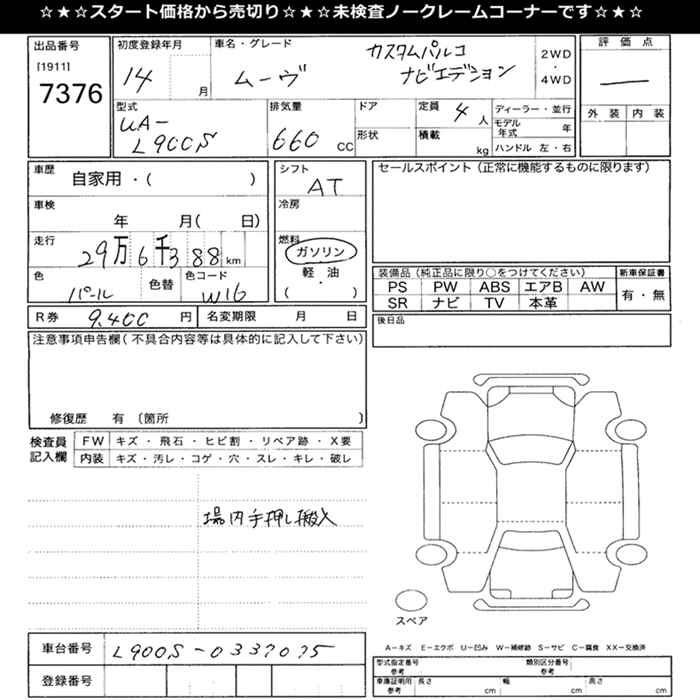 ☆★☆スタート価格から売切り☆★☆未検査ノークレームコーナーです☆★☆
出品番号
[1911]
7376
初度登録年月
14
月
車名・グレード
ムーヴ
カスタムパルコ
ナビエデション
2WD
・
4WD
評価点
―
外装 内装
型式
UA-
L900S
排気量
660 CC
ドア
形状
定員 4 人
積載 kg
ディーラー・並行
モデル年式 年
ハンドル 左・右
車歴
自家用・( )
車検
年 月( 日)
走行
29万6千388 km
色
パール
色替
色コード
W16
シフト
AT
冷房
燃料
ガソリン
軽・油
( )
セールスポイント(正常に機能するものに限ります)
装備品(純正品に限り○をつけてください)
PS PW ABS エアB AW
SR ナビ TV 本革
新車保証書
有・無
後日品
R券 9,400 円
名変期限 月 日
注意事項申告欄(不具合内容等は具体的に記入して下さい)
修復歴 有 〔箇所 〕
検査員
記入欄
FW キズ・飛石・ヒビ割・リペア跡・X要
内装 キズ・汚レ・コゲ・穴・スレ・キレ・破レ
場内手押し搬入
スペア
車台番号 L900S-0337075
登録番号
A-キズ E-エクボ U-凹み W-補修跡 S-サビ C-腐食 XX-交換済
型式指定番号
参考
類別区分番号
参考
車庫証明用
参考
長さ cm
幅 cm
高さ cm